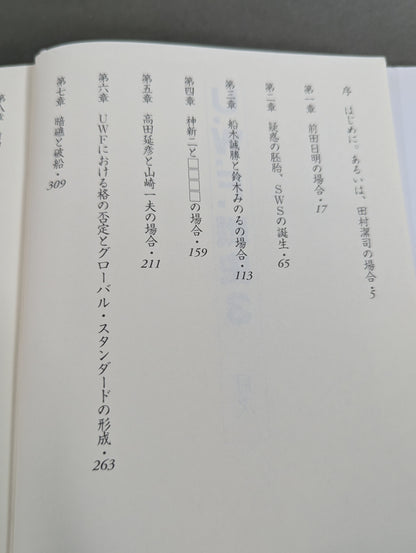 序 はじめに。あるいは、田村潔司の場合・5
第一章 前田日明の場合・17
第二章 疑惑の胚胎、SWSの誕生・65
第三章 船木誠勝と鈴木みのるの場合・113
第四章 神新二と□□□□の場合・159
第五章 高田延彦と山崎一夫の場合・211
第六章 UWFにおける格の否定とグローバル・スタンダードの形成・263
第七章 暗礁と破船・309
第八章